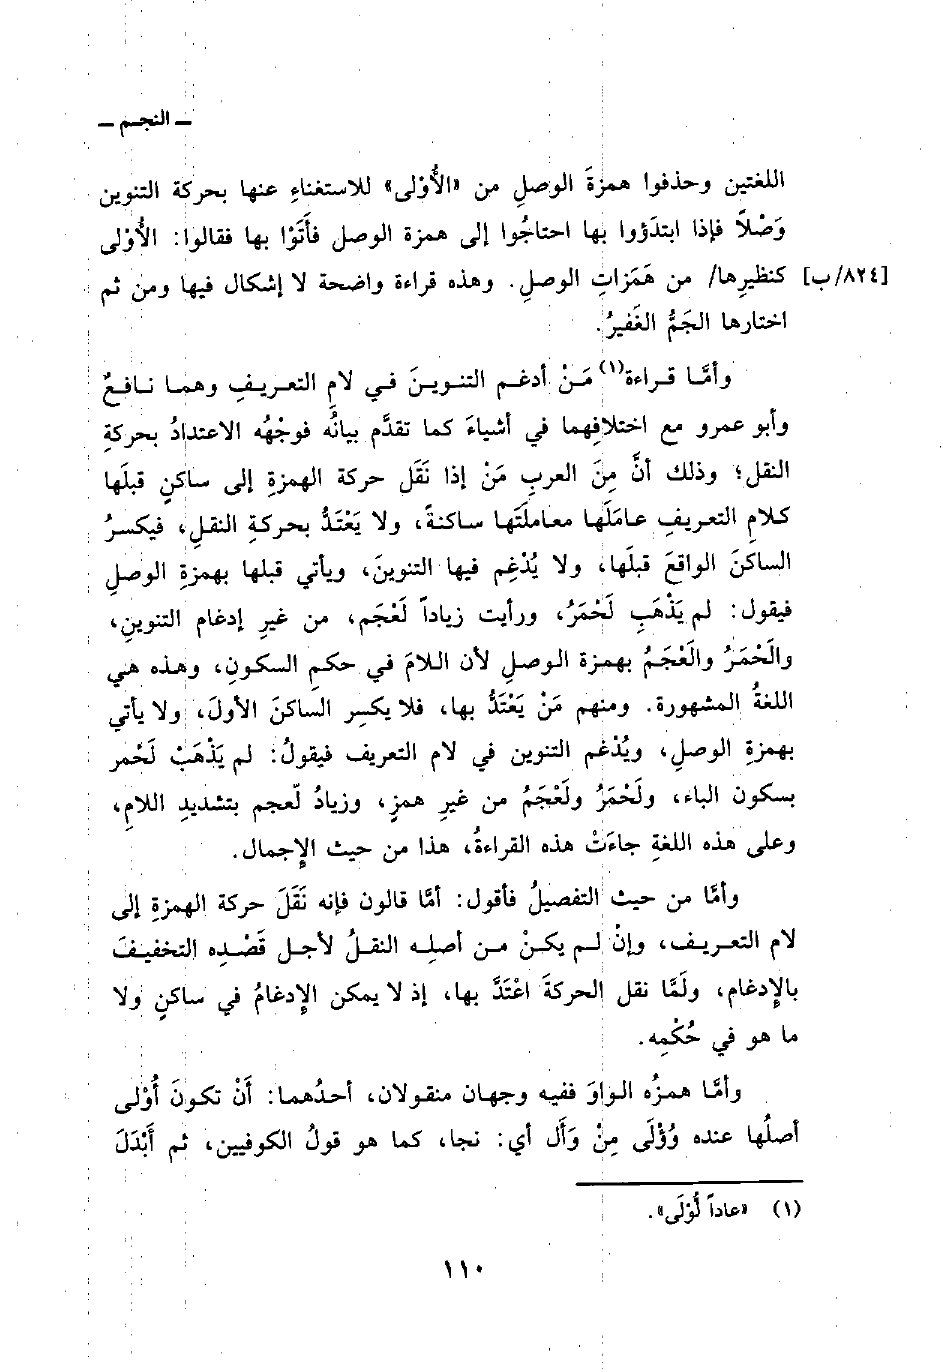 ـ النجـم ـ
اللغتين وحذفوا همزةَ الوصلِ من «الأُوْلى» للاستغناءِ عنها بحركة التنوين
وَصْلاً فإذا ابتدَؤوا بها احتاجُوا إلى همزة الوصل فأَتَوْا بها فقالوا: الأُوْلى
[٨٢٤/ب] كنظيرِها/ من هَمَزاتِ الوصلِ. وهذه قراءة واضحة لا إشكال فيها ومن ثم
اختارها الجَمُّ الغَفيرُ.
وأمَّا قراءة(١) مَنْ أدغم التنوينَ في لام التعريفِ وهما نافعٌ
وأبو عمرو مع اختلافِهما في أشياءَ كما تقدَّم بيانُه فوجْهُه الاعتدادُ بحركةِ
النقل؛ وذلك أنَّ مِنَ العربِ مَنْ إذا نَقَل حركة الهمزةِ إلى ساكنٍ قبلَها
كلامِ التعريفِ عامَلَها معاملتَها ساكنةً، ولا يَعْتَدُّ بحركةِ النقلِ، فيكسرُ
الساكنَ الواقعَ قبلَها، ولا يُدْغِم فيها التنوينَ، ويأتي قبلها بهمزةِ الوصلِ
فيقول: لم يَذْهَبِ لَحْمَرُ، ورأيت زياداً لَعْجَم، من غيرِ إدغام التنوينِ،
والَحْمَرُ والَعْجَمُ بهمزة الوصلِ لأن اللامَ في حكمِ السكونِ، وهذه هي
اللغةُ المشهورة. ومنهم مَنْ يَعْتَدُّ بها، فلا يكسِر الساكنَ الأولَ، ولا يأتي
بهمزةِ الوصلِ، ويُدْغم التنوين في لام التعريف فيقولُ: لم يَذْهَبْ لَحْمر
بسكون الباء، ولَحْمَرُ ولَعْجَمُ من غيرِ همزٍ، وزيادُ لّعجم بتشديدِ اللامِ،
وعلى هذه اللغةِ جاءَتْ هذه القراءةُ، هذا من حيث الإِجمال.
وأمَّا من حيث التفصيلُ فأقول: أمَّا قالون فإنه نَقَلَ حركة الهمزةِ إلى
لام التعريف، وإنْ لم يكنْ من أصلِه النقلُ لأجل قَصْدِه التخفيفَ
بالإِدغام، ولَمَّا نقل الحركةَ اعْتَدَّ بها، إذ لا يمكن الإِدغامُ في ساكنٍ ولا
ما هو في حُكْمِه.
وأمَّا همزُه الواوَ ففيه وجهان منقولان، أحدُهما: أَنْ تكونَ أُوْلى
أصلُها عنده وُؤْلَى مِنْ وَأَل أي: نجا، كما هو قولُ الكوفيين، ثم أَبْدَلَ
(١) «عاداً لُوْلَى».
١١٠